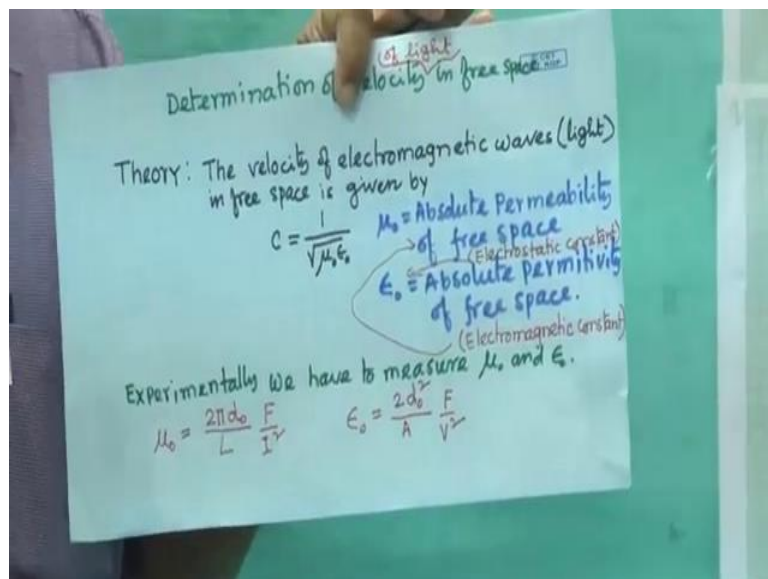 (of light)
Determination of velocity in free space
Theory: The velocity of electromagnetic waves (light)
in free space is given by
C = 1/√μ₀ε₀
μ₀ = Absolute Permeability
of free space
(Electrostatic constant)
ε₀ = Absolute permitivity
of free space.
(Electromagnetic constant)
Experimentally we have to measure μ₀ and ε₀.
μ₀ = 2πd₀/L F/I² ε₀ = 2d₀²/A F/V²